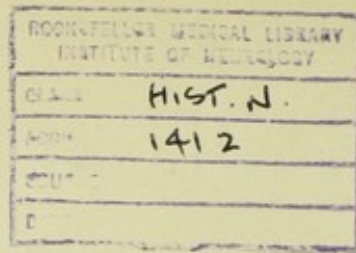 ROCKEFELLER MEDICAL LIBRARY
INSTITUTE OF NEUROLOGY
CLASS HIST. N.
ACCN. 1412